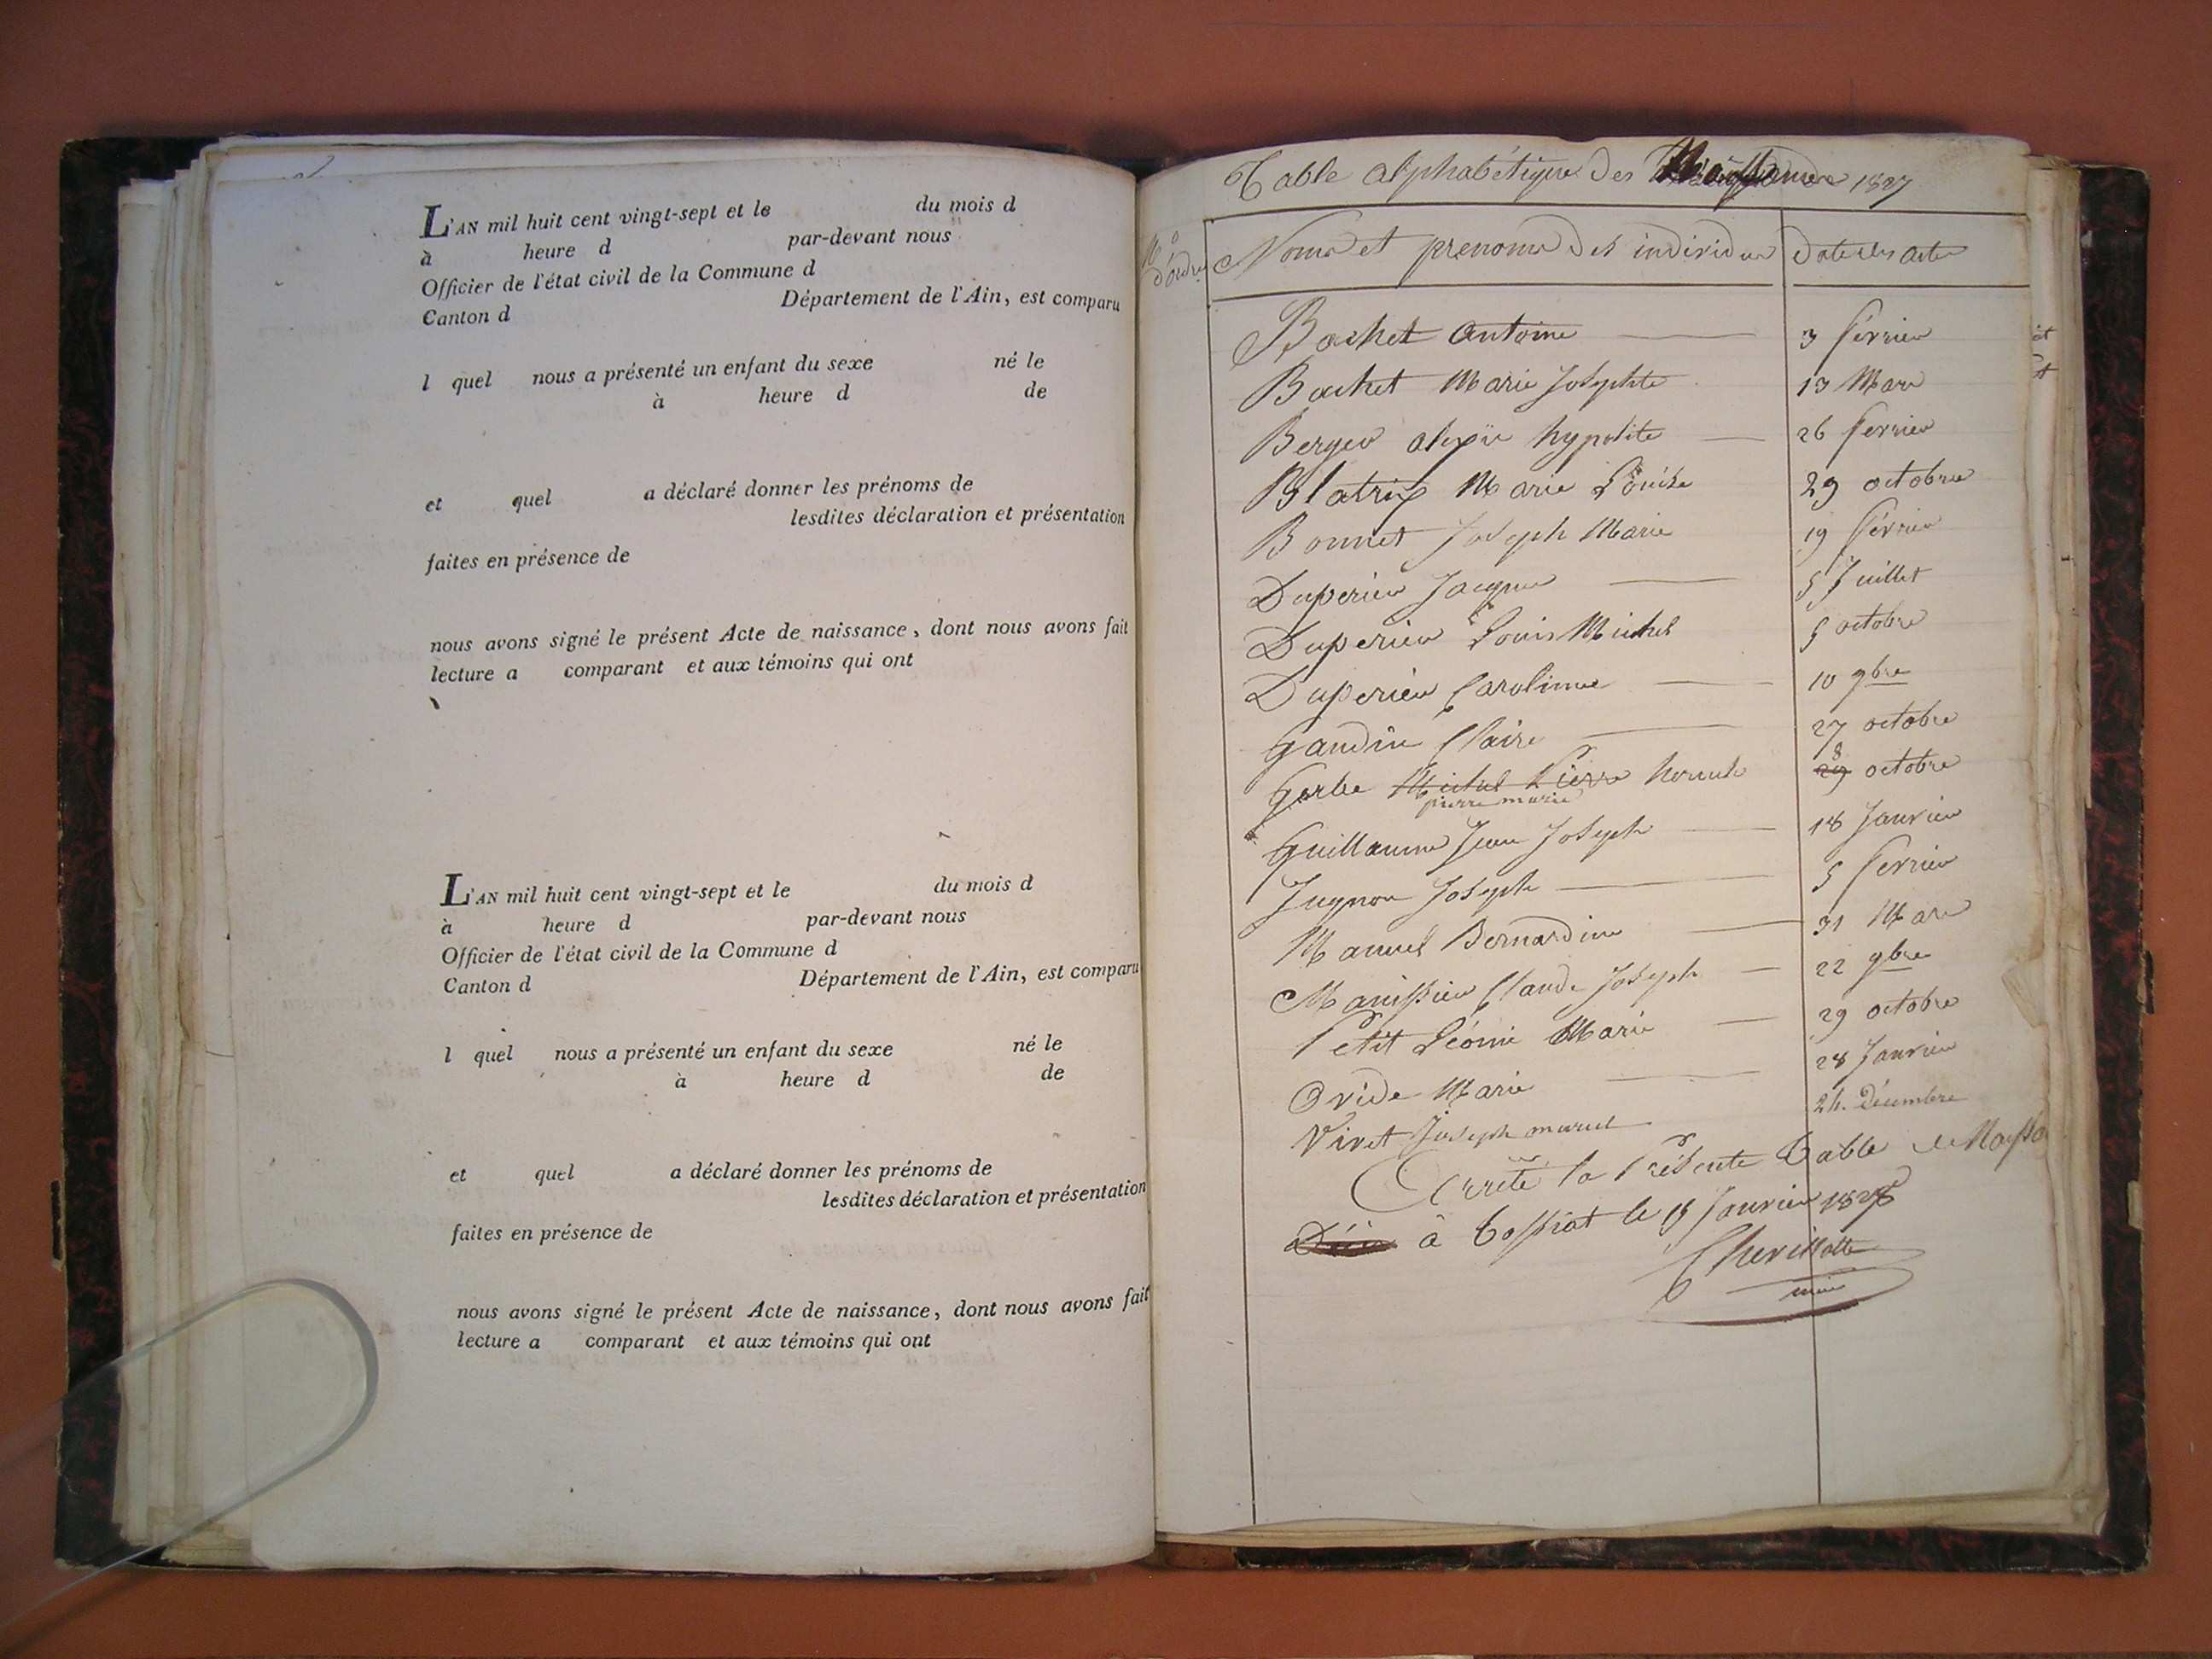 L'AN mil huit cent vingt-sept et le du mois d
à heure d par-devant nous
Officier de l'état civil de la Commune d
Canton d Département de l'Ain, est comparu
l quel nous a présenté un enfant du sexe né le
à heure d de
et quel a déclaré donner les prénoms de
lesdites déclaration et présentation
faites en présence de
nous avons signé le présent Acte de naissance, dont nous avons fait
lecture a comparant et aux témoins qui ont
L'AN mil huit cent vingt-sept et le du mois d
à heure d par-devant nous
Officier de l'état civil de la Commune d
Canton d Département de l'Ain, est comparu
l quel nous a présenté un enfant du sexe né le
à heure d de
et quel a déclaré donner les prénoms de
lesdites déclaration et présentation
faites en présence de
nous avons signé le présent Acte de naissance, dont nous avons fait
lecture a comparant et aux témoins qui ont
Table alphabétique des Naissances 1827
No d'ordre Noms et prenoms des individus date des actes
Bachet Antoine 3 février
Bachet Marie Josephte 13 Mars
Berger alexis hypolite 26 fevrier
Blatrix Marie Louise 29 octobre
Bonnet Joseph Marie 19 février
Duperieu Jacques 5 Juillet
Duperieu Louis Michel 5 octobre
Duperieu Caroline 10 9bre
Gandin Claire 27 octobre
Gerbe Michel Pierre 28 octobre
pierre marie
Guillaume Jean Joseph 18 Janvier
Jugnon Joseph 5 fevrier
Manuel Bernardine 31 Mars
Manissieu Claude Joseph 22 9bre
Petit Léonie Marie 29 octobre
Ovide Marie 28 Janvier
Viret Joseph marcel 24. Décembre
Arreté la Présente Table de
à Tossiat le 15 Janvier 1828